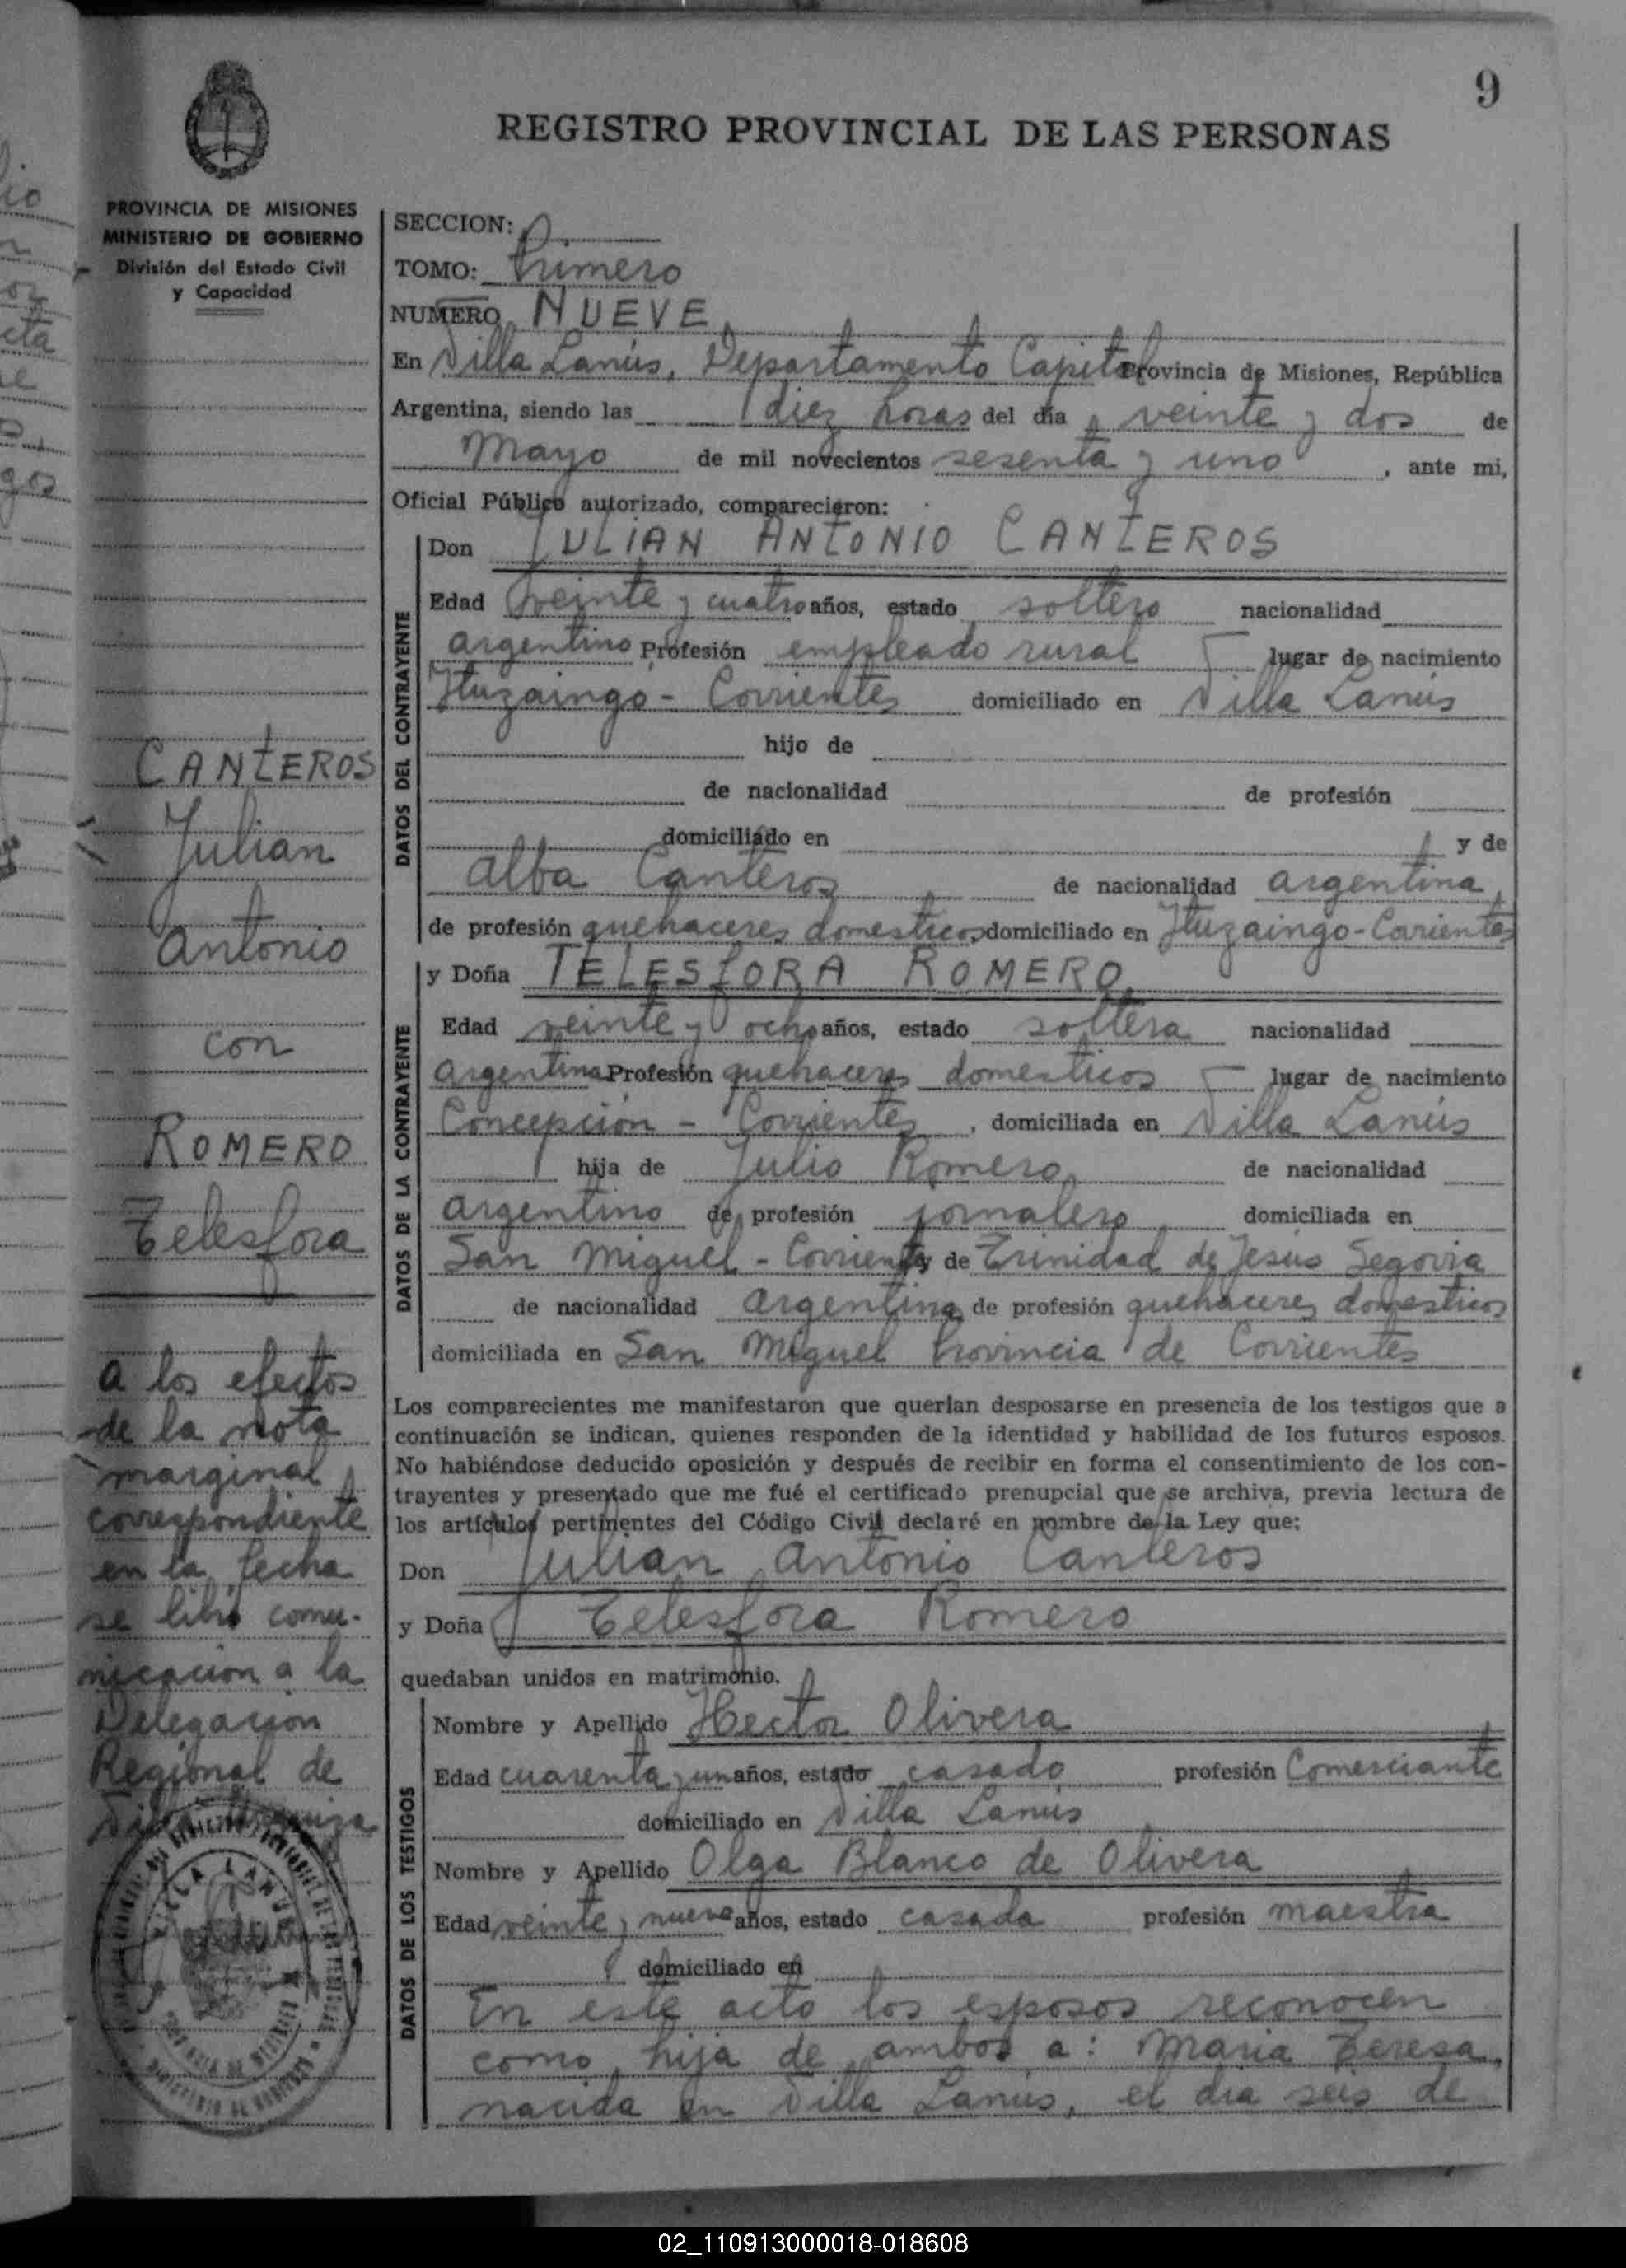 9
REGISTRO PROVINCIAL DE LAS PERSONAS
PROVINCIA DE MISIONES
MINISTERIO DE GOBIERNO
División del Estado Civil
y Capacidad
CANTEROS
Julian
Antonio
con
ROMERO
Telesfora
A los efectos
de la nota
marginal
correspondiente
en la fecha
se libró comu-
nicacion a la
Delegacion
Regional de
Villa
VILLA LANUS
SECCION:
TOMO: Primero
NUMERO NUEVE
En Villa Lanús, Departamento Capital Provincia de Misiones, República
Argentina, siendo las diez horas del día veinte y dos de
Mayo de mil novecientos sesenta y uno, ante mi,
Oficial Público autorizado, comparecieron:
DATOS DEL CONTRAYENTE
Don JULIAN ANTONIO CANTEROS
Edad veinte y cuatro años, estado soltero nacionalidad
argentino Profesión empleado rural lugar de nacimiento
Ituzaingo - Corrientes domiciliado en Villa Lanús
hijo de
de nacionalidad de profesión
domiciliado en y de
Alba Canteros de nacionalidad argentina,
de profesión quehaceres domesticos domiciliado en Ituzaingo - Corientes
DATOS DE LA CONTRAYENTE
y Doña TELESFORA ROMERO
Edad veinte y ocho años, estado soltera nacionalidad
argentina Profesión quehaceres domesticos lugar de nacimiento
Concepción - Corrientes, domiciliada en Villa Lanús
hija de Julio Romero de nacionalidad
argentino de profesión jornalero domiciliada en
San Miguel - Corrientes y de Trinidad de Jesús Segovia
de nacionalidad Argentina de profesión quehaceres domesticos
domiciliada en San Miguel Provincia de Corrientes
Los comparecientes me manifestaron que querían desposarse en presencia de los testigos que a
continuación se indican, quienes responden de la identidad y habilidad de los futuros esposos.
No habiéndose deducido oposición y después de recibir en forma el consentimiento de los con-
trayentes y presentado que me fué el certificado prenupcial que se archiva, previa lectura de
los artículos pertinentes del Código Civil declaré en nombre de la Ley que:
Don Julian Antonio Canteros
y Doña Telesfora Romero
quedaban unidos en matrimonio.
DATOS DE LOS TESTIGOS
Nombre y Apellido Hector Olivera
Edad cuarenta y un años, estado casado profesión Comerciante
domiciliado en Villa Lanús
Nombre y Apellido Olga Blanco de Olivera
Edad veinte y nueve años, estado casada profesión maestra
domiciliado en
En este acto los esposos reconocen
como hija de ambos a: Maria Teresa,
nacida en Villa Lanús, el dia seis de
02_110913000018-018608